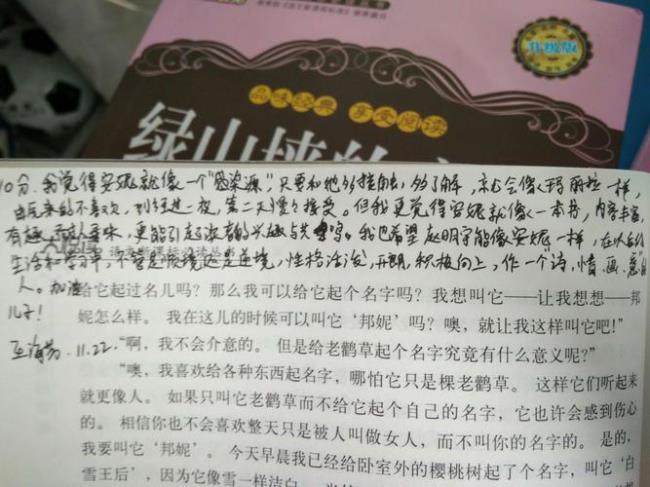 升级版
品味经典 享受阅读
绿山墙的
10分. 我觉得安妮就像一个"感染源",只要和她够接触,够了解,就会像玛丽拉一样,
由原来的不喜欢,到经过一夜,第二天慢慢接受。但我更觉得安妮就像一本书,内容丰富,
有趣,耐人寻味,更能引起读者的兴趣与共鸣。我也希望赵明宇能像安妮一样,在以后的
生活和学习中,不管是顺境还是逆境,性格活泼,开朗,积极向上,作一个诗,情,画,意的
人。加油
儿子!
11.22.
给它起过名儿吗?那么我可以给它起个名字吗?我想叫它——让我想想——邦
妮怎么样。我在这儿的时候可以叫它‘邦妮’吗?噢,就让我这样叫它吧!”
“啊,我不会介意的。但是给老鹳草起个名字究竟有什么意义呢?”
“噢,我喜欢给各种东西起名字,哪怕它只是棵老鹳草。这样它们听起来
就更像人。如果只叫它老鹳草而不给它起个自己的名字,它也许会感到伤心
的。相信你也不会喜欢整天只是被人叫做女人,而不叫你的名字的。是的,
我要叫它‘邦妮’。今天早晨我已经给卧室外的樱桃树起了个名字,叫它‘白
雪王后’,因为它像雪一样洁白。